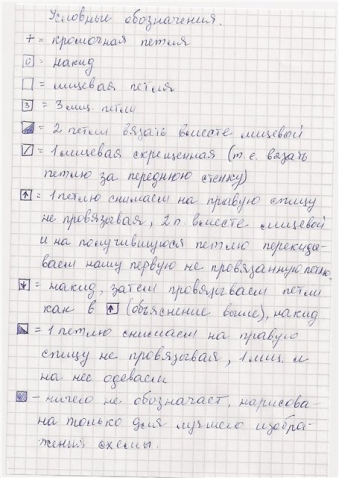 Условные обозначения.
+ = кромочная петля
U = накид
= лицевая петля
3 = 3 лиц. петли
= 2 петли вязать вместе лицевой
/ = 1 лицевая скрещенная (т.е. вязать
петлю за переднюю стенку)
↑ = 1 петлю снимаем на правую спицу
не провязывая, 2 п. вместе лицевой
и на получившуюся петлю перекиды-
ваем нашу первую не провязанную петлю.
↓ = накид, затем провязываем петли
как в ↑ (объяснение выше), накид
= 1 петлю снимаем на правую
спицу не провязывая, 1 лиц. и
на неё одеваем
- ничего не обозначает, нарисова-
на только для лучшего изобра-
жения схемы.